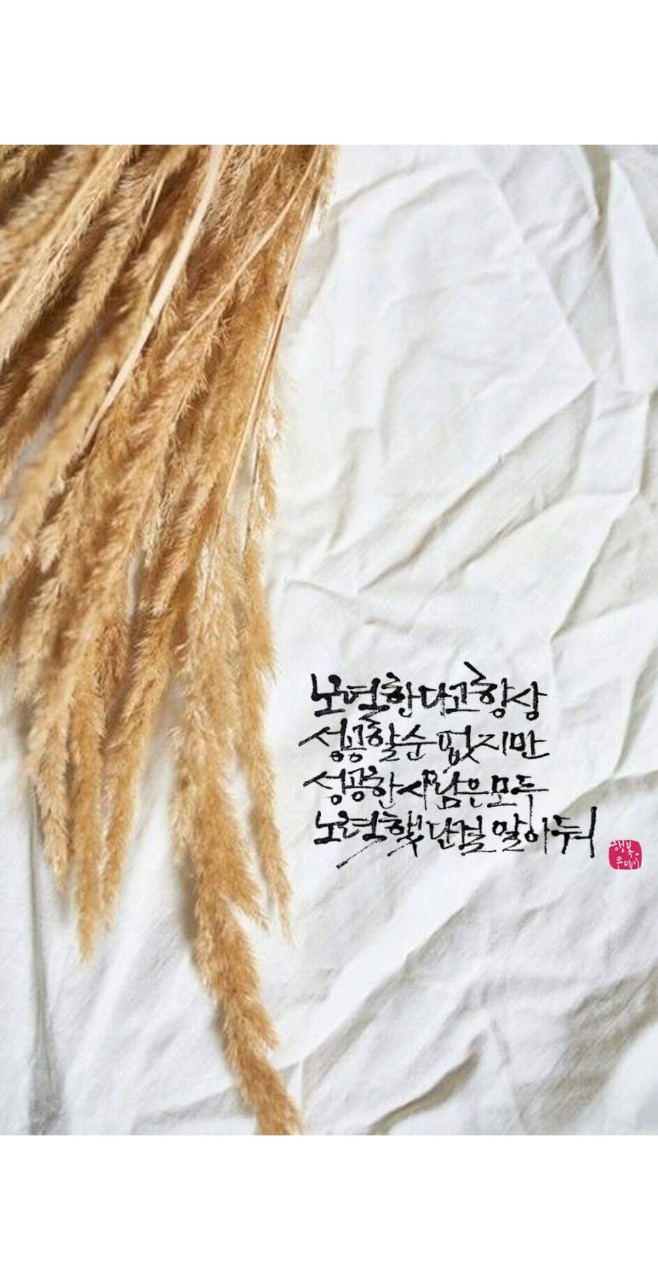 노력한다고 항상
성공할 순 없지만
성공한 사람은 모두
노력했단 걸 알아둬
행복